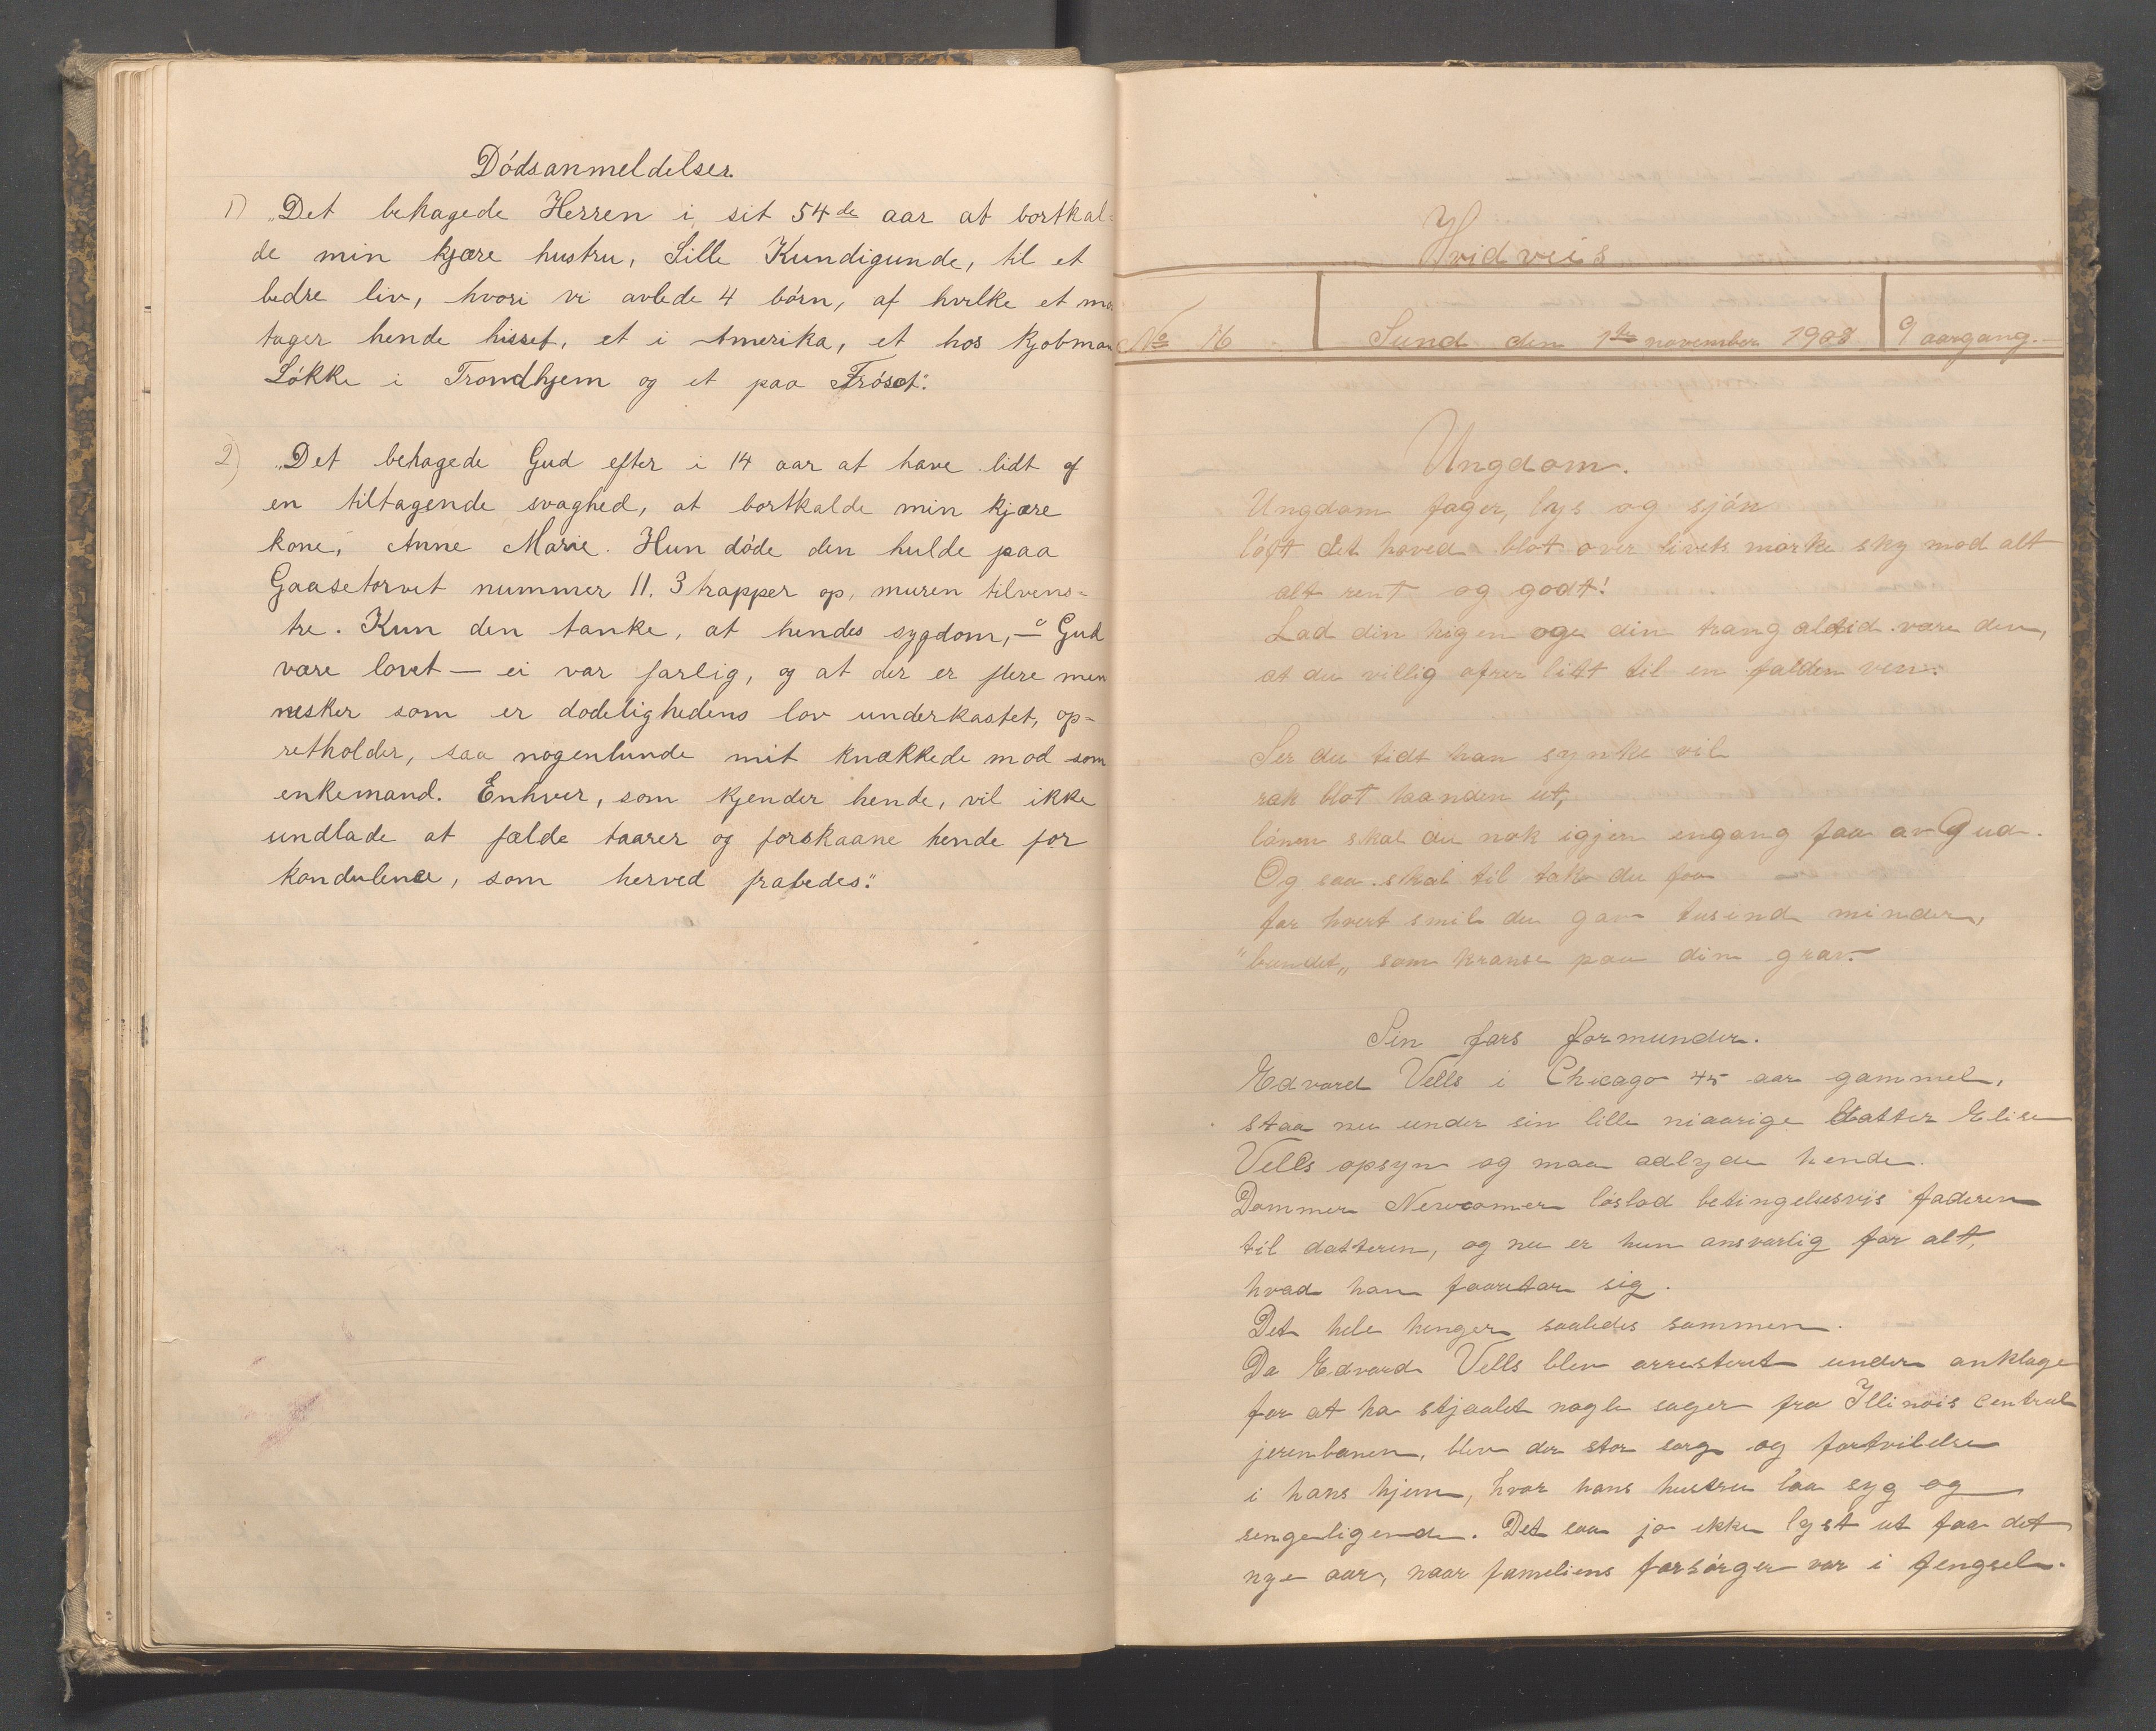 Dódsanmeldelser.
1) „Det behagede Herren i sit 54de aar at bortkal=
de min kjære hustru, Sille Kundigunde, til et
bedre liv, hvori vi avlede 4 börn, af hvilke et mo
tager hende hisset, et i Amerika, et hos kjobman
Lökke i Trondhjem og et paa Fröset."
2) „Det behagede Gud efter i 14 aar at have lidt af
en tiltagende svaghed, at bortkalde min kjære
kone, Anne Marie. Hun döde den hulde paa
Gaasetorvet nummer 11. 3 trapper op, muren tilvens-
tre. Kun den tanke, at hendes sygdom, — Gud
være lovet — ei var farlig, og at der er flere men
nesker som er dodelighedens lov underkastet, op-
retholder, saa nogenlunde mit knækkede mod som
enkemand. Enhver, som kjender hende, vil ikke
undlade at fælde taarer og forskaane hende for
kondulence, som herved frabedes."
Hvidveis
No 16 Sund den 1ste november 1908 9 aargang.
Ungdom.
Ungdom fager, lys og sjön
löft det hoved blot over livets mörke sky mod alt
alt rent og godt!
Lad din higen og din trang altid være den,
at du villig ofrer litt til en falden ven.
Ser du tidt han synke vil
ræk blot haanden ut,
lönen skal du nok igjen engang faa av Gud.
Og saa skal til tak du faa
for hvert smil du gav tusind minder,
"bundet„ som kranse paa din grav.
Sin fars formunder.
Edvard Vells i Chicago 45 aar gammel,
staa nu under sin lille niaarige datter Elise
Vells opsyn og maa adlyde hende.
Dommer Newcomer löslod betingelsesvis faderen
til datteren, og nu er hun ansvarlig for alt,
hvad han faaretar sig.
Det hele henger saaledes sammen.
Da Edvard Vells blev arresteret under anklage
for at ha stjaalet nogle sager fra Illinois Central
jerenbanen, blev der stor sorg og fortvilelse
i hans hjem, hvor hans hustru laa syg og
sengeligende. Det saa jo ikke lyst ut faa det
nye aar, naar fameliens forsörger var i fengsel.